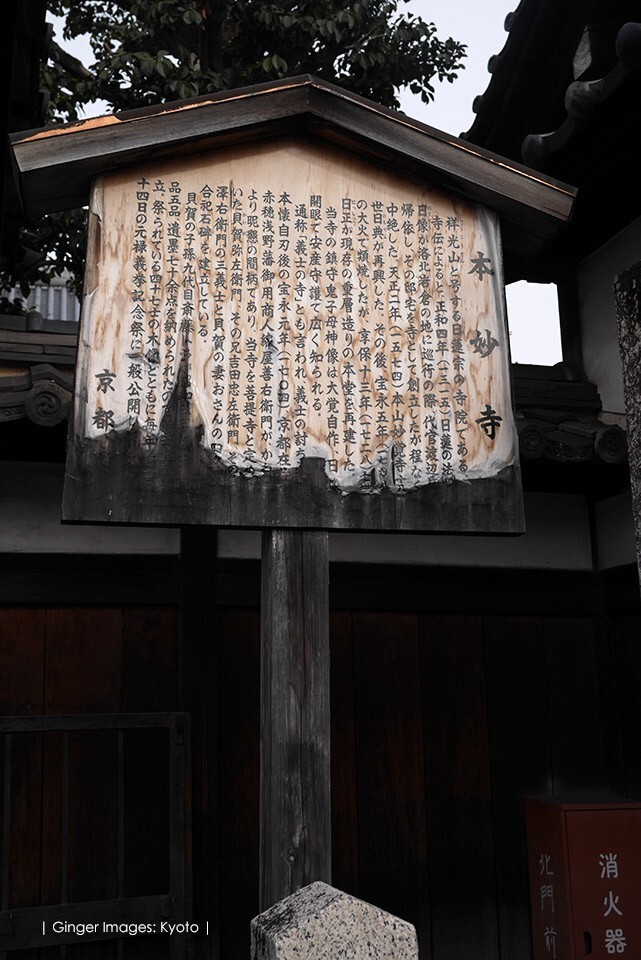 本妙寺
祥光山と号する日蓮宗の寺院である
寺伝によると、正和四年(一三一五)日蓮の法
日像が洛北岩倉の地に巡行の際、代官渡辺
帰依し、その邸宅を寺として創立したが程な
中絶した。天正二年(一五七四)本山妙覚寺
世日典が再興した。その後、宝永五年(一七
の大火で類焼したが、享保十三年(一七二八)
日正が現存の重層造りの本堂を再建した
当寺の鎮守鬼子母神像は大覚自作、日
開眼で安産守護で広く知られる。
通称「義士の寺」とも言われ、義士の討ち
本懐自刃後の宝永元年(一七〇四)京都在
赤穂浅野藩御用商人綿屋善右衛門がか
より昵懇の間柄であり、当寺を菩提寺と定め
いた貝賀弥左衛門、その兄吉田忠左衛門、その
澤右衛門の三義士と貝賀の妻おさんの四
合祀石碑を建立している。
貝賀の子孫九代目斎藤
品五品、遺墨七十余点を納められたの
立、祭られている四十七士の木像とともに毎年
十四日の元禄義挙記念祭に一般公開
京都
消火器
北門前
| Ginger Images: Kyoto |